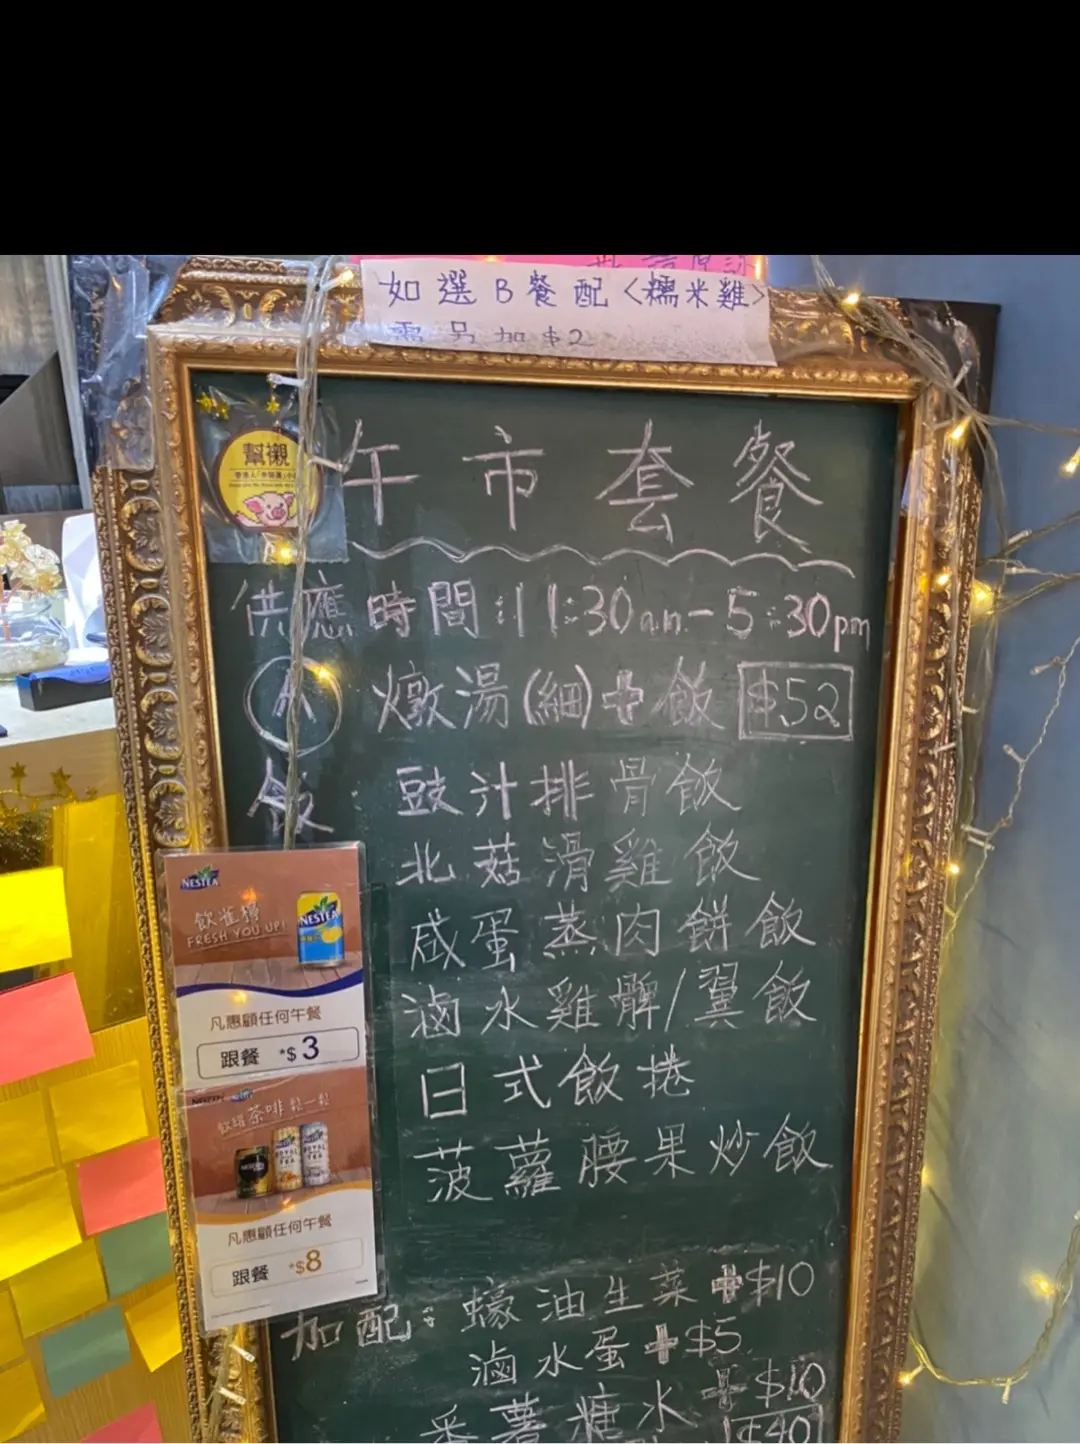 如選B餐配<糯米雞>
需另加$2
幫襯
午市套餐
供應時間:11:30a.m-5:30pm
A 燉湯(細)+飯 $52
飯 豉汁排骨飯
北菇滑雞飯
咸蛋蒸肉餅飯
滷水雞髀/翼飯
日式飯捲
菠蘿腰果炒飯
NESTEA
飲雀躍
FRESH YOU UP!
NESTEA
凡惠顧任何午餐
跟餐 *$3
飲罐茶啡鬆一鬆
凡惠顧任何午餐
跟餐 *$8
加配: 蠔油生菜+$10
滷水蛋+$5
番薯糖水+$10
$40